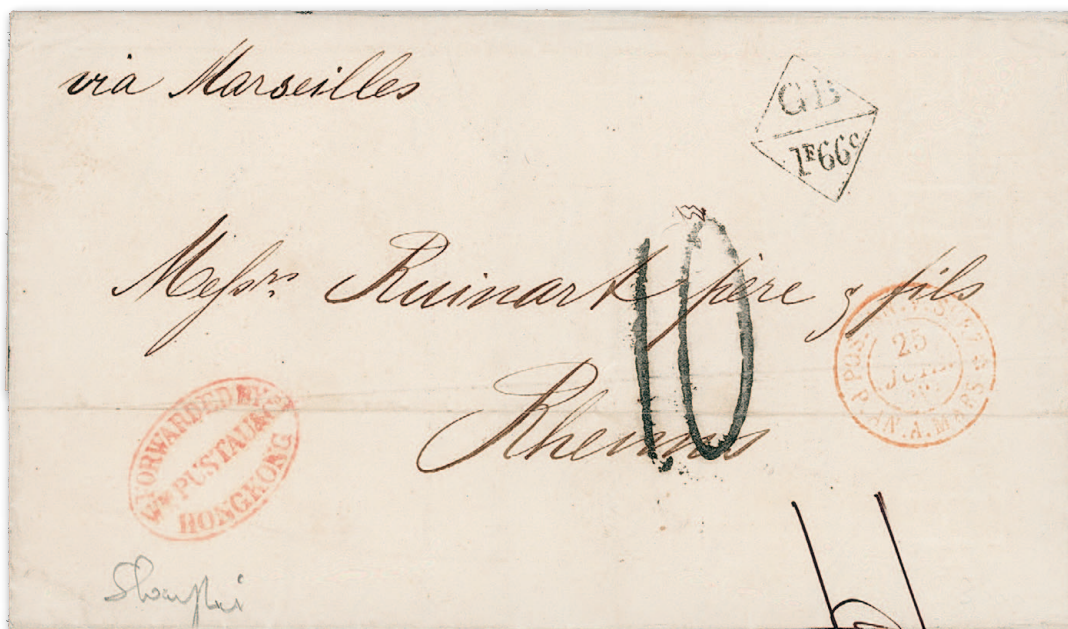 via Marseilles
GB
1F66c
Messrs Ruinart père & fils
10
Rheims
25
FORWARDED BY
Wm PUSTAU & Co
HONGKONG
Shanghai